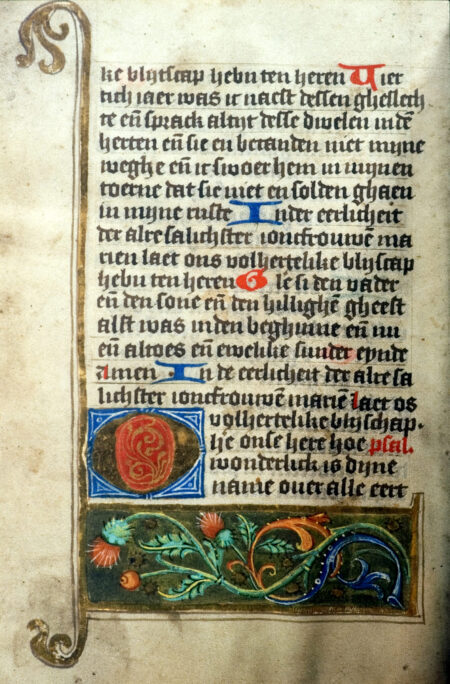 ke blijtscap hebn ten heren Vier
tich iaer was ic naest dessen gheslech
te eñ sprack altijt desse dwelen indē
herten eñ sie en bekanden niet myne
weghe eñ ic swoer hem in mijnen
toerne dat sie niet en solden ghaen
in mijne ruste In der eerlicheit
der alre salichster ioncfrouwē ma
rien laet ons volhertelike blijscap
hebn ten heren Gle si den vader
eñ den sone eñ den hillighē gheest
alst was inden beghinne eñ nu
eñ altoes eñ ewelike sunder eynde
amen In de eerlicheit der alre sa
lichster ioncfrouwē mariē laet os
volhertelike blijschap.
He onse here hoe psal.
wonderlick is dijne
name ouer alle eert